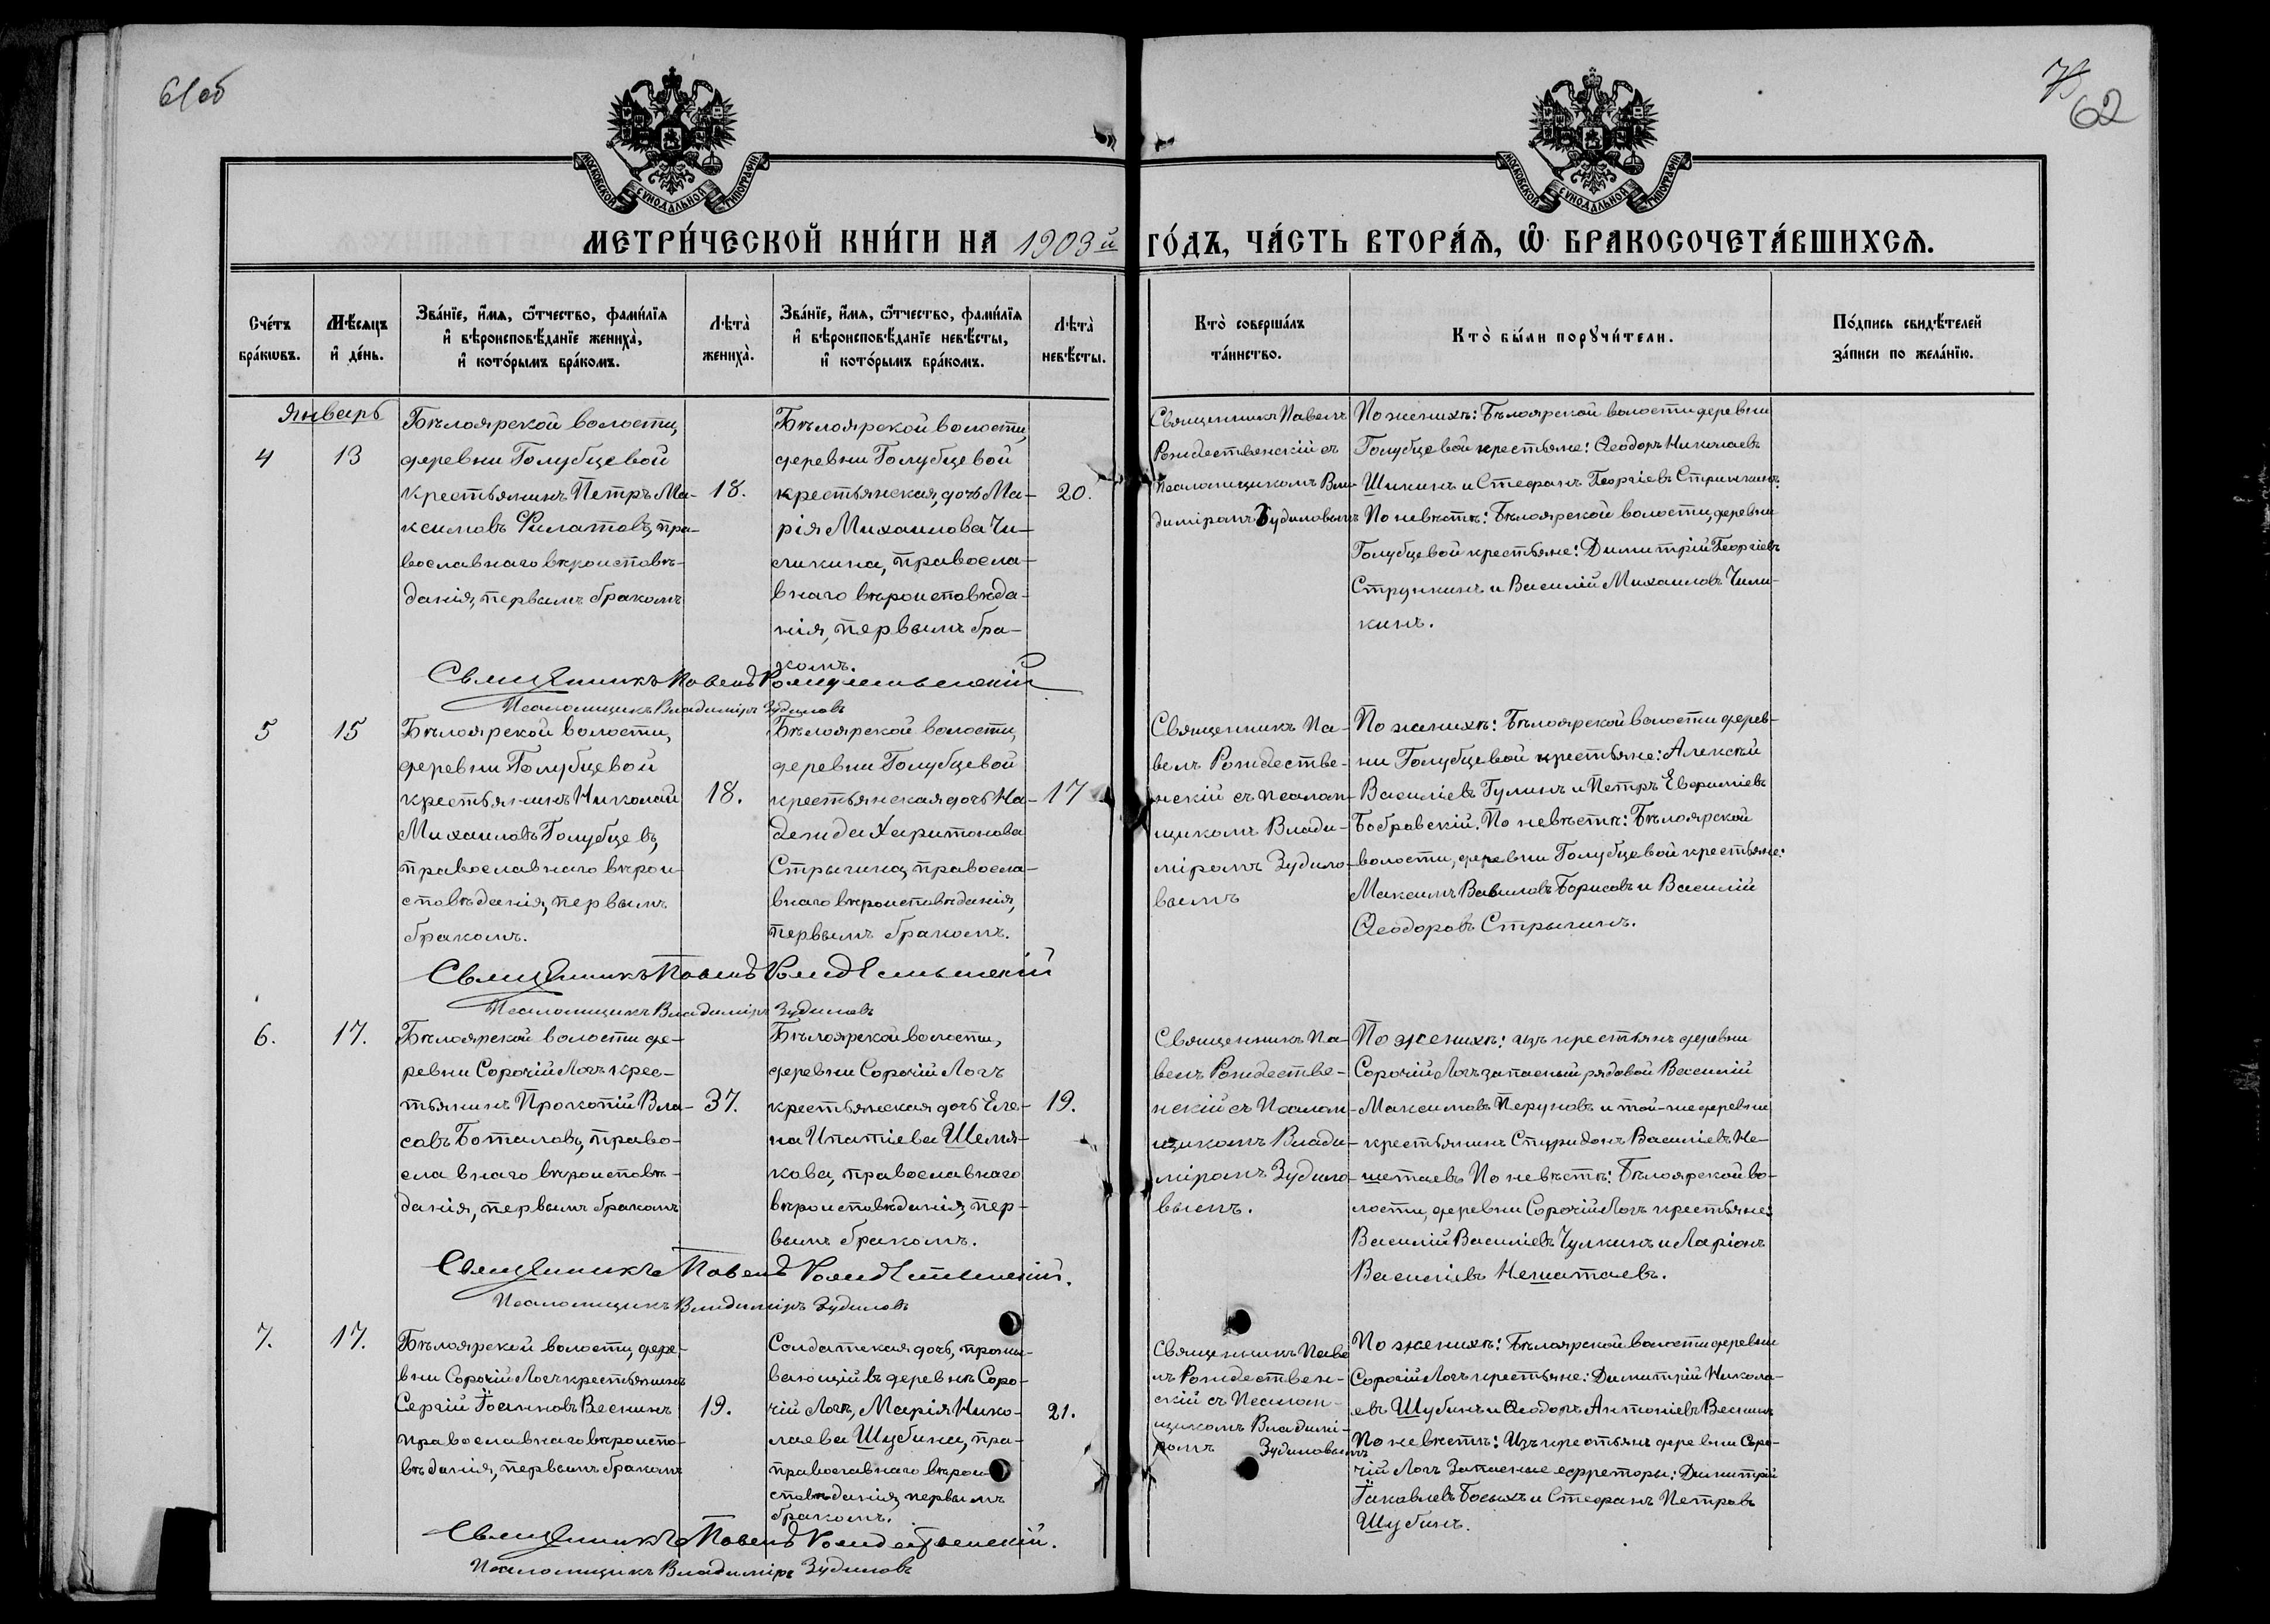 61об
75
62
МОСКОВСКОЙ СУНОДАЛЬНОЙ ТИПОГРАФІИ
МОСКОВСКОЙ СУНОДАЛЬНОЙ ТИПОГРАФІИ
МЕТРИ́ЧЕСКОЙ КНИ́ГИ НА 1903й ГО́ДЪ, ЧА́СТЬ ВТОРА́Я, Ѡ БРАКОСОЧЕТА́ВШИХСѦ.
Сче́тъ
бра́кѡвъ.
Мѣ́сяцъ
и҆ де́нь.
Зва́нїе, и҆́мѧ, ѻ҆́тчество, фами́лїѧ
и҆ вѣроисповѣ́данїе жениха̀,
и҆ кото́рымъ бра́комъ.
Лѣта̀
жениха̀.
Зва́нїе, и҆́мѧ, ѻ҆́тчество, фами́лїѧ
и҆ вѣроисповѣ́данїе невѣ́сты,
и҆ кото́рымъ бра́комъ.
Лѣта̀
невѣ́сты.
Кто̀ соверша́лъ
та́инство.
Кто̀ бы́ли порꙋчи́тели.
По́дпись свидѣ́телей
за́писи по жела́нїю.
Январь
4
13
Бѣлоярской волости,
деревни Голубцевой
крестьянинъ Петръ Ма-
ксимовъ Филатовъ, пра-
вославнаго вѣроисповѣ-
данія, первымъ бракомъ
18.
Бѣлоярской волости,
деревни Голубцевой
крестьянская дочь Ма-
рія Михаилова Чи-
ликина, правосла-
внаго вѣроисповѣда-
нія, первымъ бра-
комъ.
20.
Священникъ Павелъ
Рождественскій съ
псаломщикомъ Вла-
диміромъ Зудиловымъ
По женихѣ: Бѣлоярской волости деревни
Голубцевой крестьяне: Ѳеодоръ Николаевъ
Шикинъ и Стефанъ Георгіевъ Стрункинъ.
По невѣстѣ: Бѣлоярской волости, деревни
Голубцевой крестьяне: Димитрій Георгіевъ
Стрункинъ и Василій Михаиловъ Чили-
кинъ.
Священникъ Павелъ Рождественскій
Псаломщикъ Владиміръ Зудиловъ
5
15
Бѣлоярской волости,
деревни Голубцевой
крестьянинъ Николай
Михаиловъ Голубцевъ,
православнаго вѣрои-
сповѣданія, первымъ
бракомъ.
18.
Бѣлоярской волости,
деревни Голубцевой
крестьянская дочь На-
дежда Харитонова
Стрыгина, правосла-
внаго вѣроисповѣданія,
первымъ бракомъ.
17
Священникъ Па-
велъ Рождестве-
нскій съ псалом-
щикомъ Влади-
міромъ Зудило-
вымъ
По женихѣ: Бѣлоярской волости дерев-
ни Голубцевой крестьяне: Алексѣй
Василіевъ Гулинъ и Петръ Евфиміевъ
Бобровскій. По невѣстѣ: Бѣлоярской
волости, деревни Голубцевой крестьяне:
Максимъ Вавиловъ Борисовъ и Василій
Ѳеодоровъ Стрыгинъ.
Священникъ Павелъ Рождественскій
Псаломщикъ Владиміръ Зудиловъ
6.
17.
Бѣлоярской волости де-
ревни Сорочій Логъ крес-
тьянинъ Прокопій Вла-
совъ Боталовъ, право-
славнаго вѣроисповѣ-
данія, первымъ бракомъ
37.
Бѣлоярской волости,
деревни Сорочій Логъ
крестьянская дочь Еле-
на Ипатіева Шемя-
кова, православнаго
вѣроисповѣданія, пер-
вымъ бракомъ.
19.
Священникъ Па-
велъ Рождестве-
нскій съ Псалом-
щикомъ Влади-
міромъ Зудило-
вымъ.
По женихѣ: изъ крестьянъ деревни
Сорочій Логъ запасный рядовой Василій
Максимовъ Перуновъ и той-же деревни
крестьянинъ Спиридонъ Василіевъ Не-
шетаевъ. По невѣстѣ: Бѣлоярской во-
лости, деревни Сорочій Логъ крестьяне:
Василій Василіевъ Чулкинъ и Ларіонъ
Василіевъ Нешатаевъ.
Священникъ Павелъ Рождественскій.
Псаломщикъ Владиміръ Зудиловъ
7.
17.
Бѣлоярской волости, дере-
вни Сорочій Логъ крестьянинъ
Сергій Іоанновъ Веснинъ
православнаго вѣроиспо-
вѣданія, первымъ бракомъ
19.
Солдатская дочь, прожи-
вающій въ деревнѣ Соро-
чій Логъ, Марія Нико-
лаева Шубина, пра-
православнаго вѣрои
сповѣданія, первымъ
бракомъ.
21.
Священникъ Паве
лъ Рождествен-
скій съ Псалом-
щикомъ Владимі-
ромъ Зудиловымъ
По женихѣ: Бѣлоярской волости деревни
Сорочій Логъ крестьяне: Димитрій Никола-
евъ Шубинъ и Ѳеодоръ Антоніевъ Веснинъ
По невѣстѣ: Изъ крестьянъ деревни Соро-
чій Логъ Запасные ефреторы: Димитрій
Іаковлевъ Босыхъ и Стефанъ Петровъ
Шубинъ.
Священникъ Павелъ Рождественскій.
Псаломщикъ Владиміръ Зудиловъ